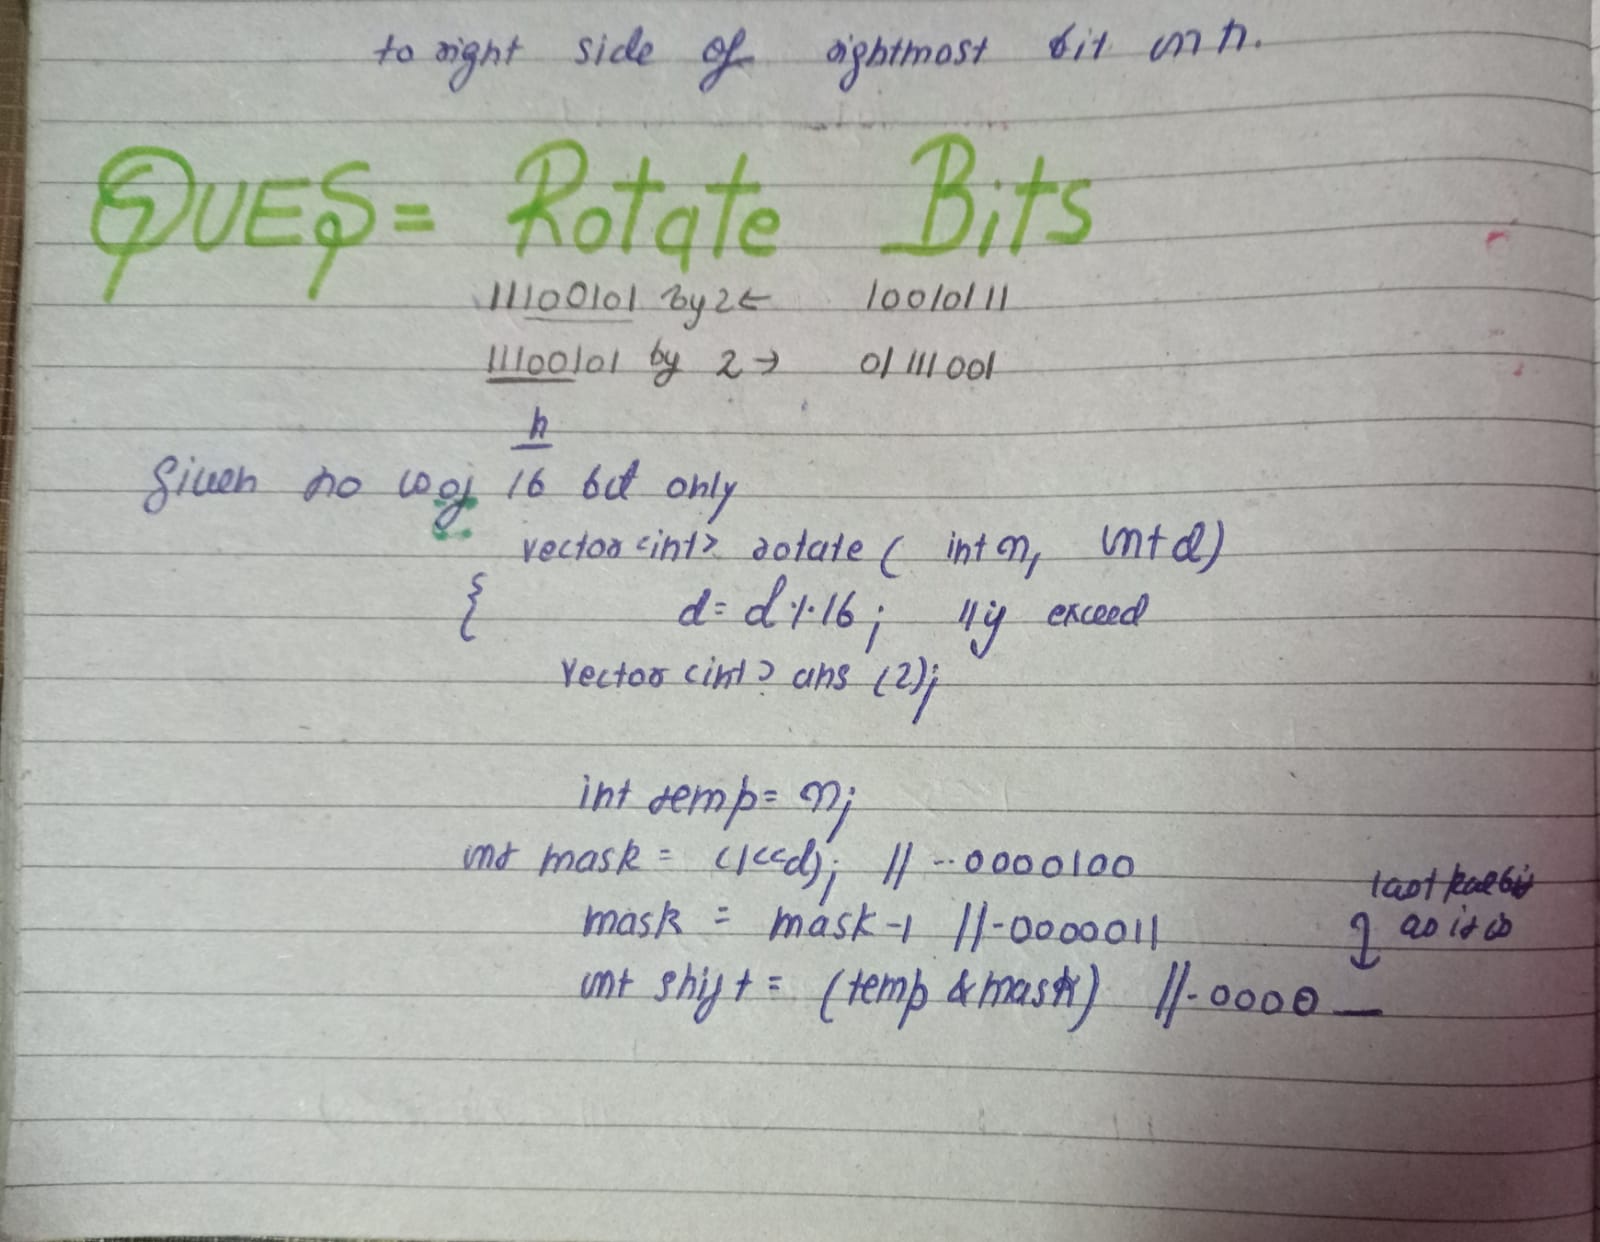 to right side of rightmost bit in n.
QUES = Rotate Bits
11100101 by 2 ← 10010111
11100101 by 2 → 01111001
n
Given no is of 16 bit only
vector <int> rotate ( int n, int d)
{ d = d % 16 ; // if exceed
vector <int> ans (2);
int temp = n;
int mask = (1<<d); // --0000100
last
mask = mask-1 //-0000011 as it is
int shift = (temp & mask) //-0000 __